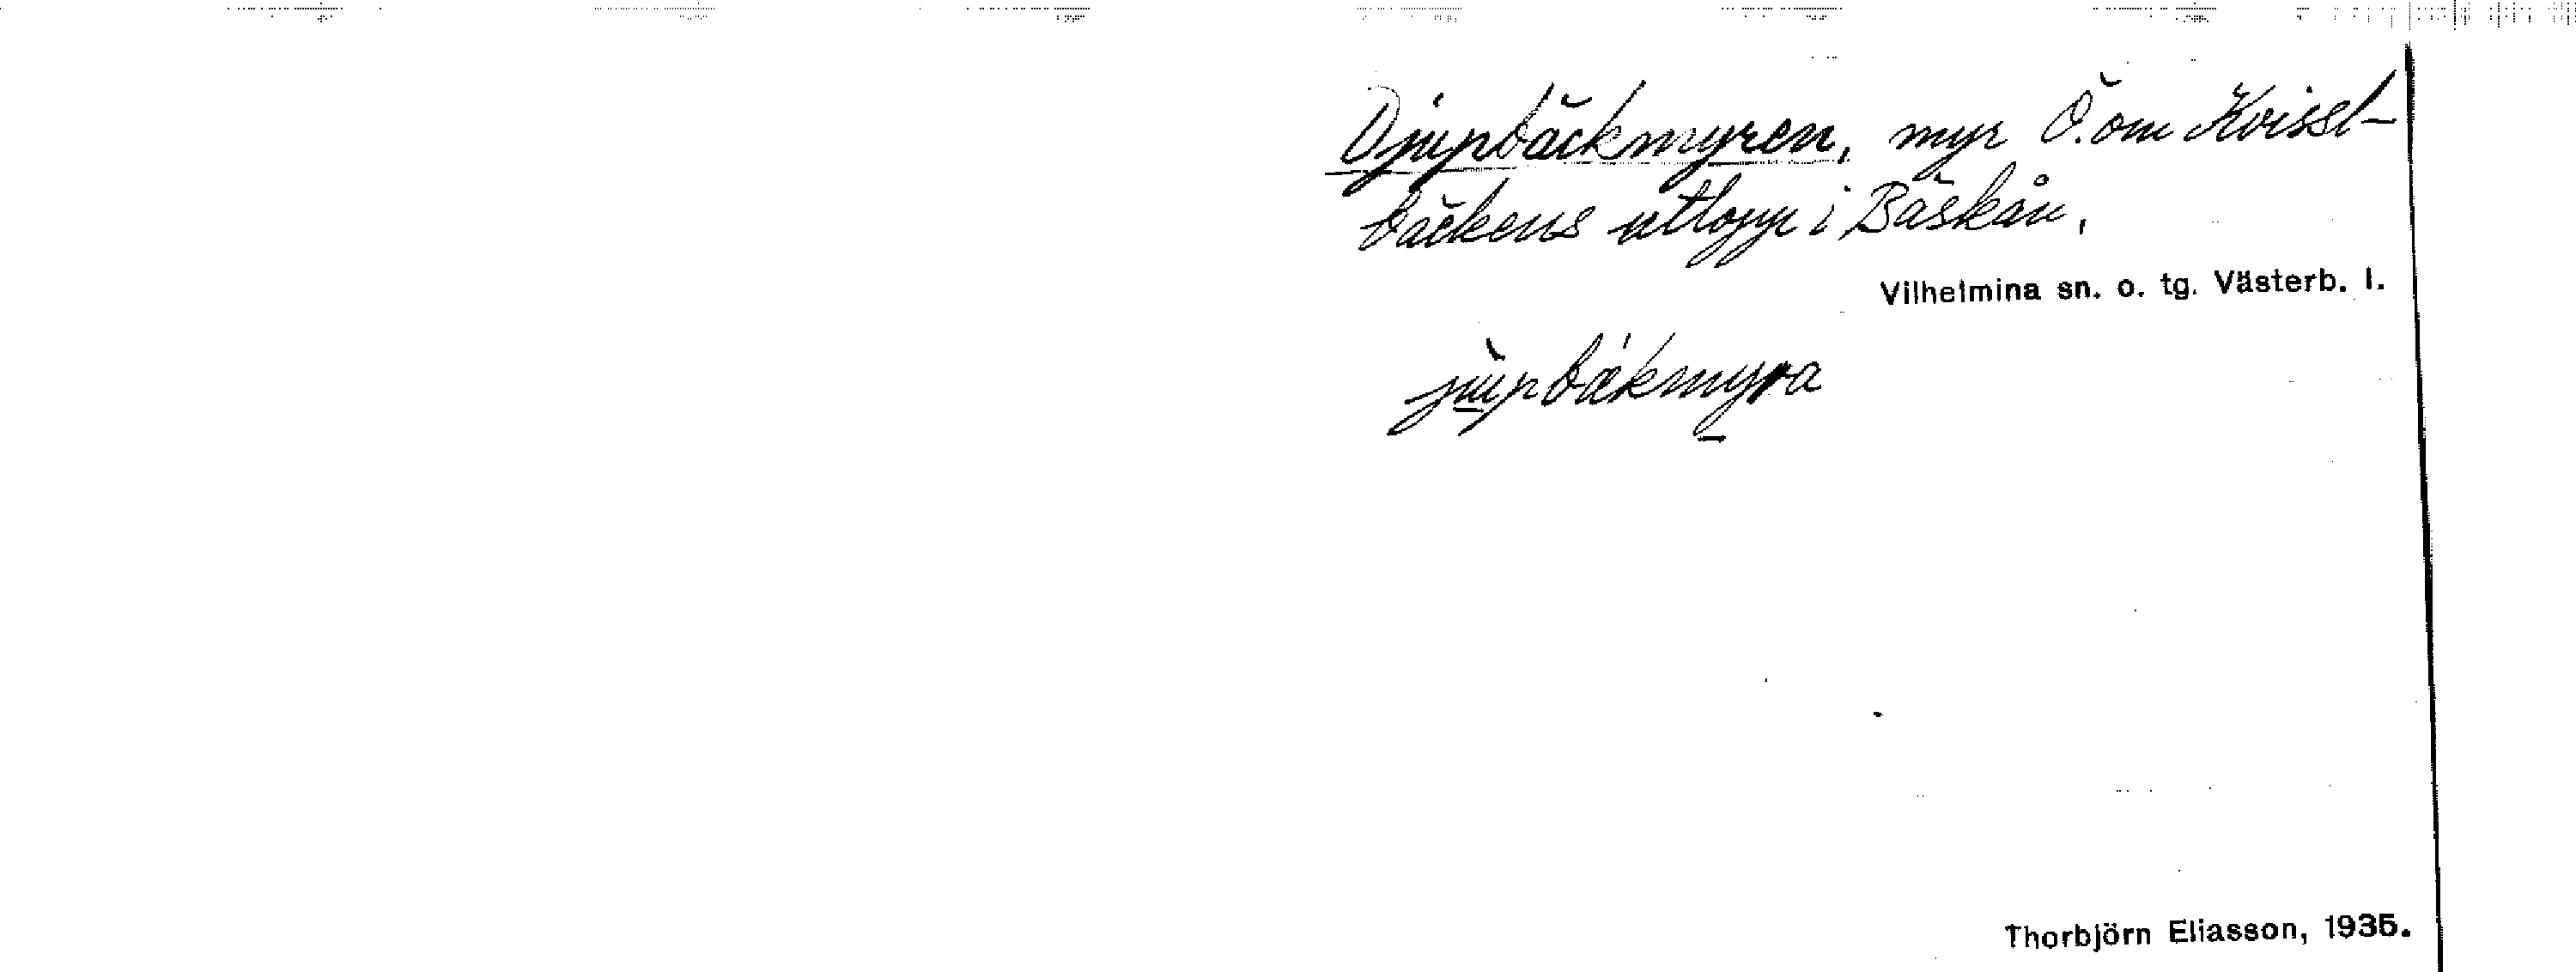 Djupbäckmyren, myr Ö. om Kvissl-
bäckens utlopp i Bäskån.
Vilhelmina sn. o. tg. Västerb. l.
jùpbækmyra
Thorbjörn Eliasson, 1935.